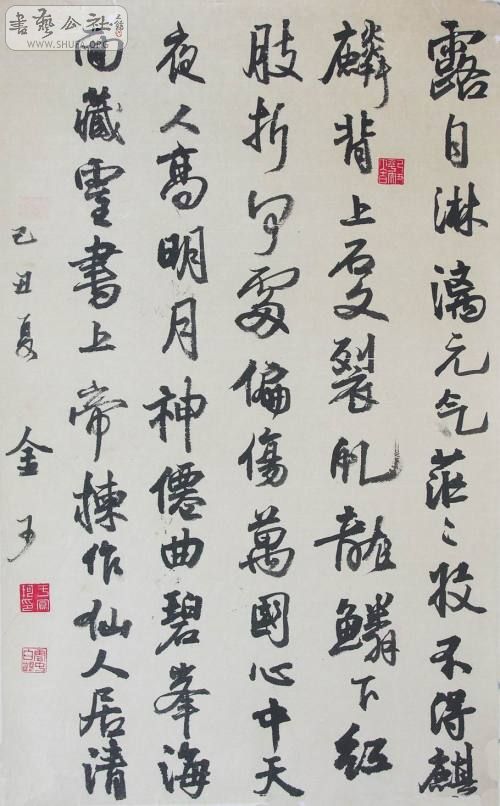 書藝公社
WWW.SHUFA.ORG
露自淋漓元气茫〻收不得麒
麟背上石文裂虬龍鱗下紅
肢折何處偏傷萬國心中天
夜久高明月神僊曲碧峯海
面藏靈書上帝揀作仙人居清
己丑夏 金子